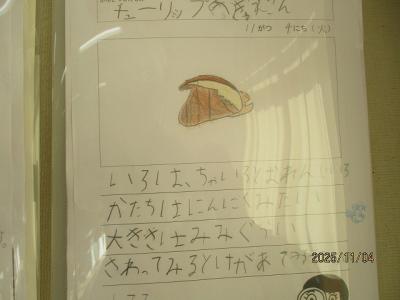 チューリップのきゅうこん
11がつ 4にち(火)
いろは、ちゃいろとおれんじいろ
かたちはにんにくみたい
大きさはみみぐらい
さわってみるとけがあ
2025/11/04